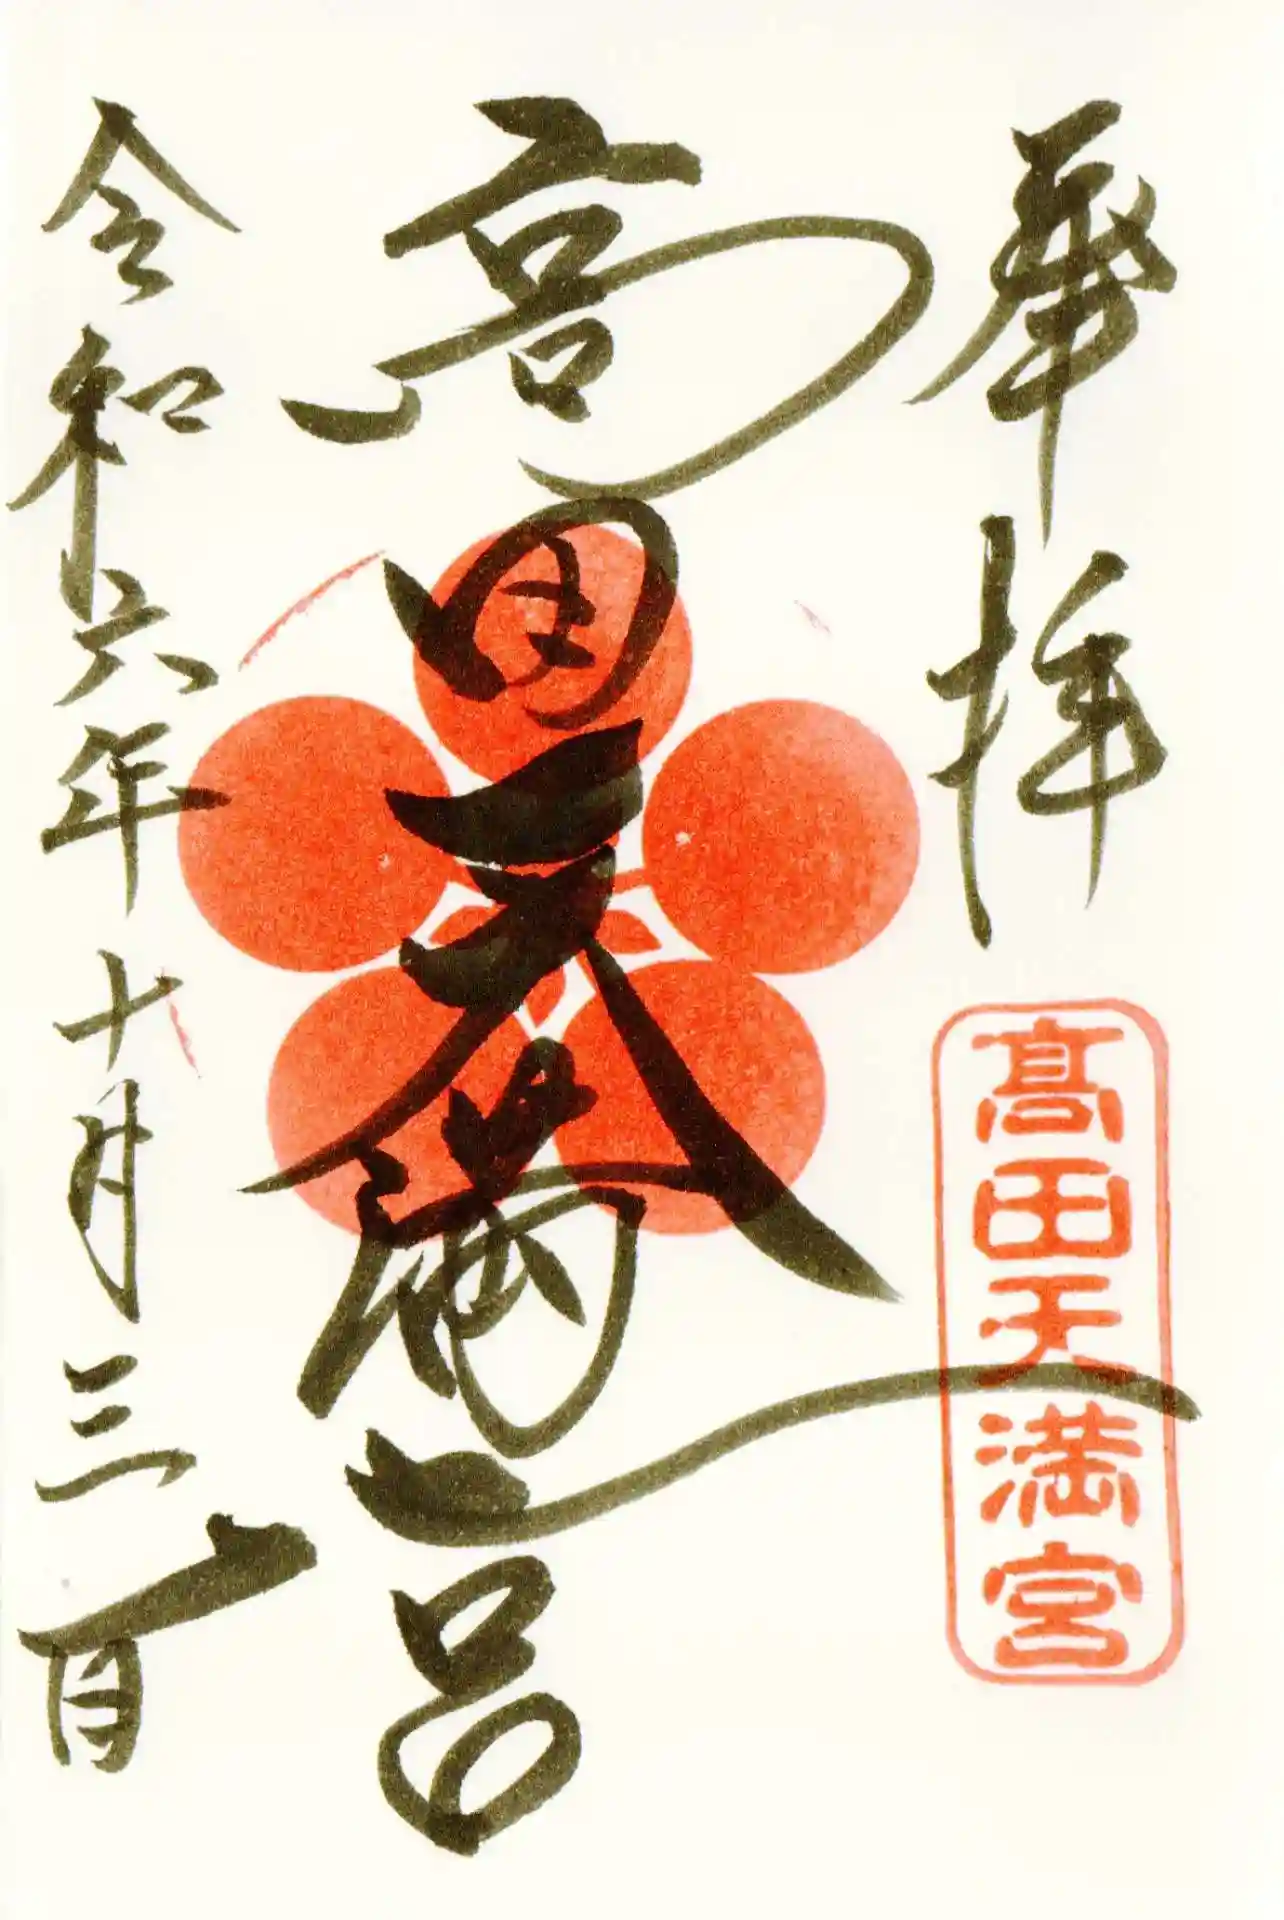 奉拝
髙田天満宮
高田天満宮
令和六年十月三日